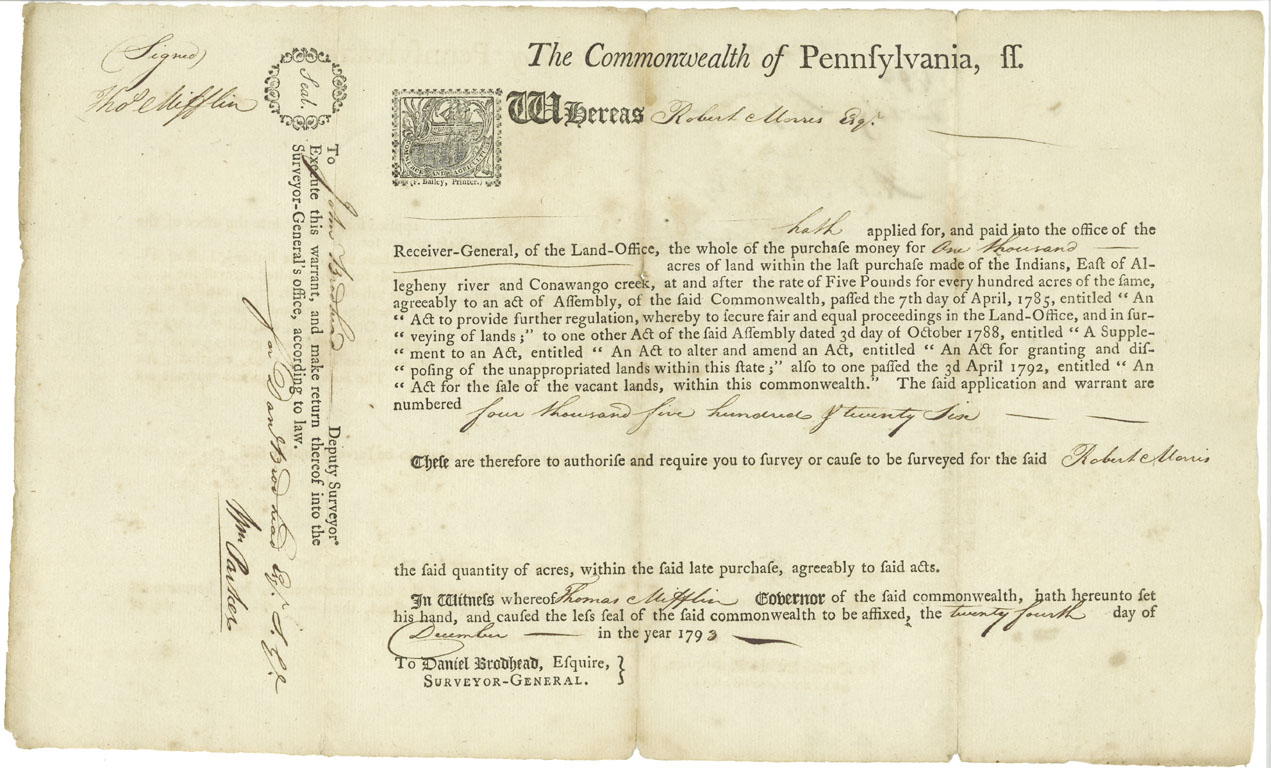 The Commonwealth of Pennſylvania, ſſ.
(Signed)
Thos Mifflin
Seal.
(F. Bailey, Printer.)
WHereas Robert Morris Esqr.
hath applied for, and paid into the office of the
Receiver-General, of the Land-Office, the whole of the purchaſe money for One thousand
acres of land within the laſt purchaſe made of the Indians, Eaſt of Al-
legheny river and Conawango creek, at and after the rate of Five Pounds for every hundred acres of the ſame,
agreeably to an act of Aſſembly, of the ſaid Commonwealth, paſſed the 7th day of April, 1785, entitled “ An
“ Act to provide further regulation, whereby to ſecure fair and equal proceedings in the Land-Office, and in ſur-
“ veying of lands ;” to one other Act of the ſaid Aſſembly dated 3d day of October 1788, entitled “ A Supple-
“ ment to an Act, entitled “ An Act to alter and amend an Act, entitled “ An Act for granting and diſ-
“ poſing of the unappropriated lands within this ſtate ;” alſo to one paſſed the 3d April 1792, entitled “ An
“ Act for the ſale of the vacant lands, within this commonwealth.” The ſaid application and warrant are
numbered four thousand five hundred & twenty Six
Theſe are therefore to authoriſe and require you to ſurvey or cauſe to be ſurveyed for the ſaid Robert Morris
the ſaid quantity of acres, within the ſaid late purchaſe, agreeably to ſaid acts.
In Witneſs whereof Thomas Mifflin Governor of the ſaid commonwealth, hath hereunto ſet
his hand, and cauſed the leſs ſeal of the ſaid commonwealth to be affixed, the twenty fourth day of
December in the year 1793
To Daniel Brodhead, Eſquire, }
SURVEYOR-GENERAL.
To John Brodhead Deputy Surveyor
Execute this warrant, and make return thereof into the
Surveyor-General's office, according to law.
for Dan Brodhead Esqr. S. G.
Wm. Parker